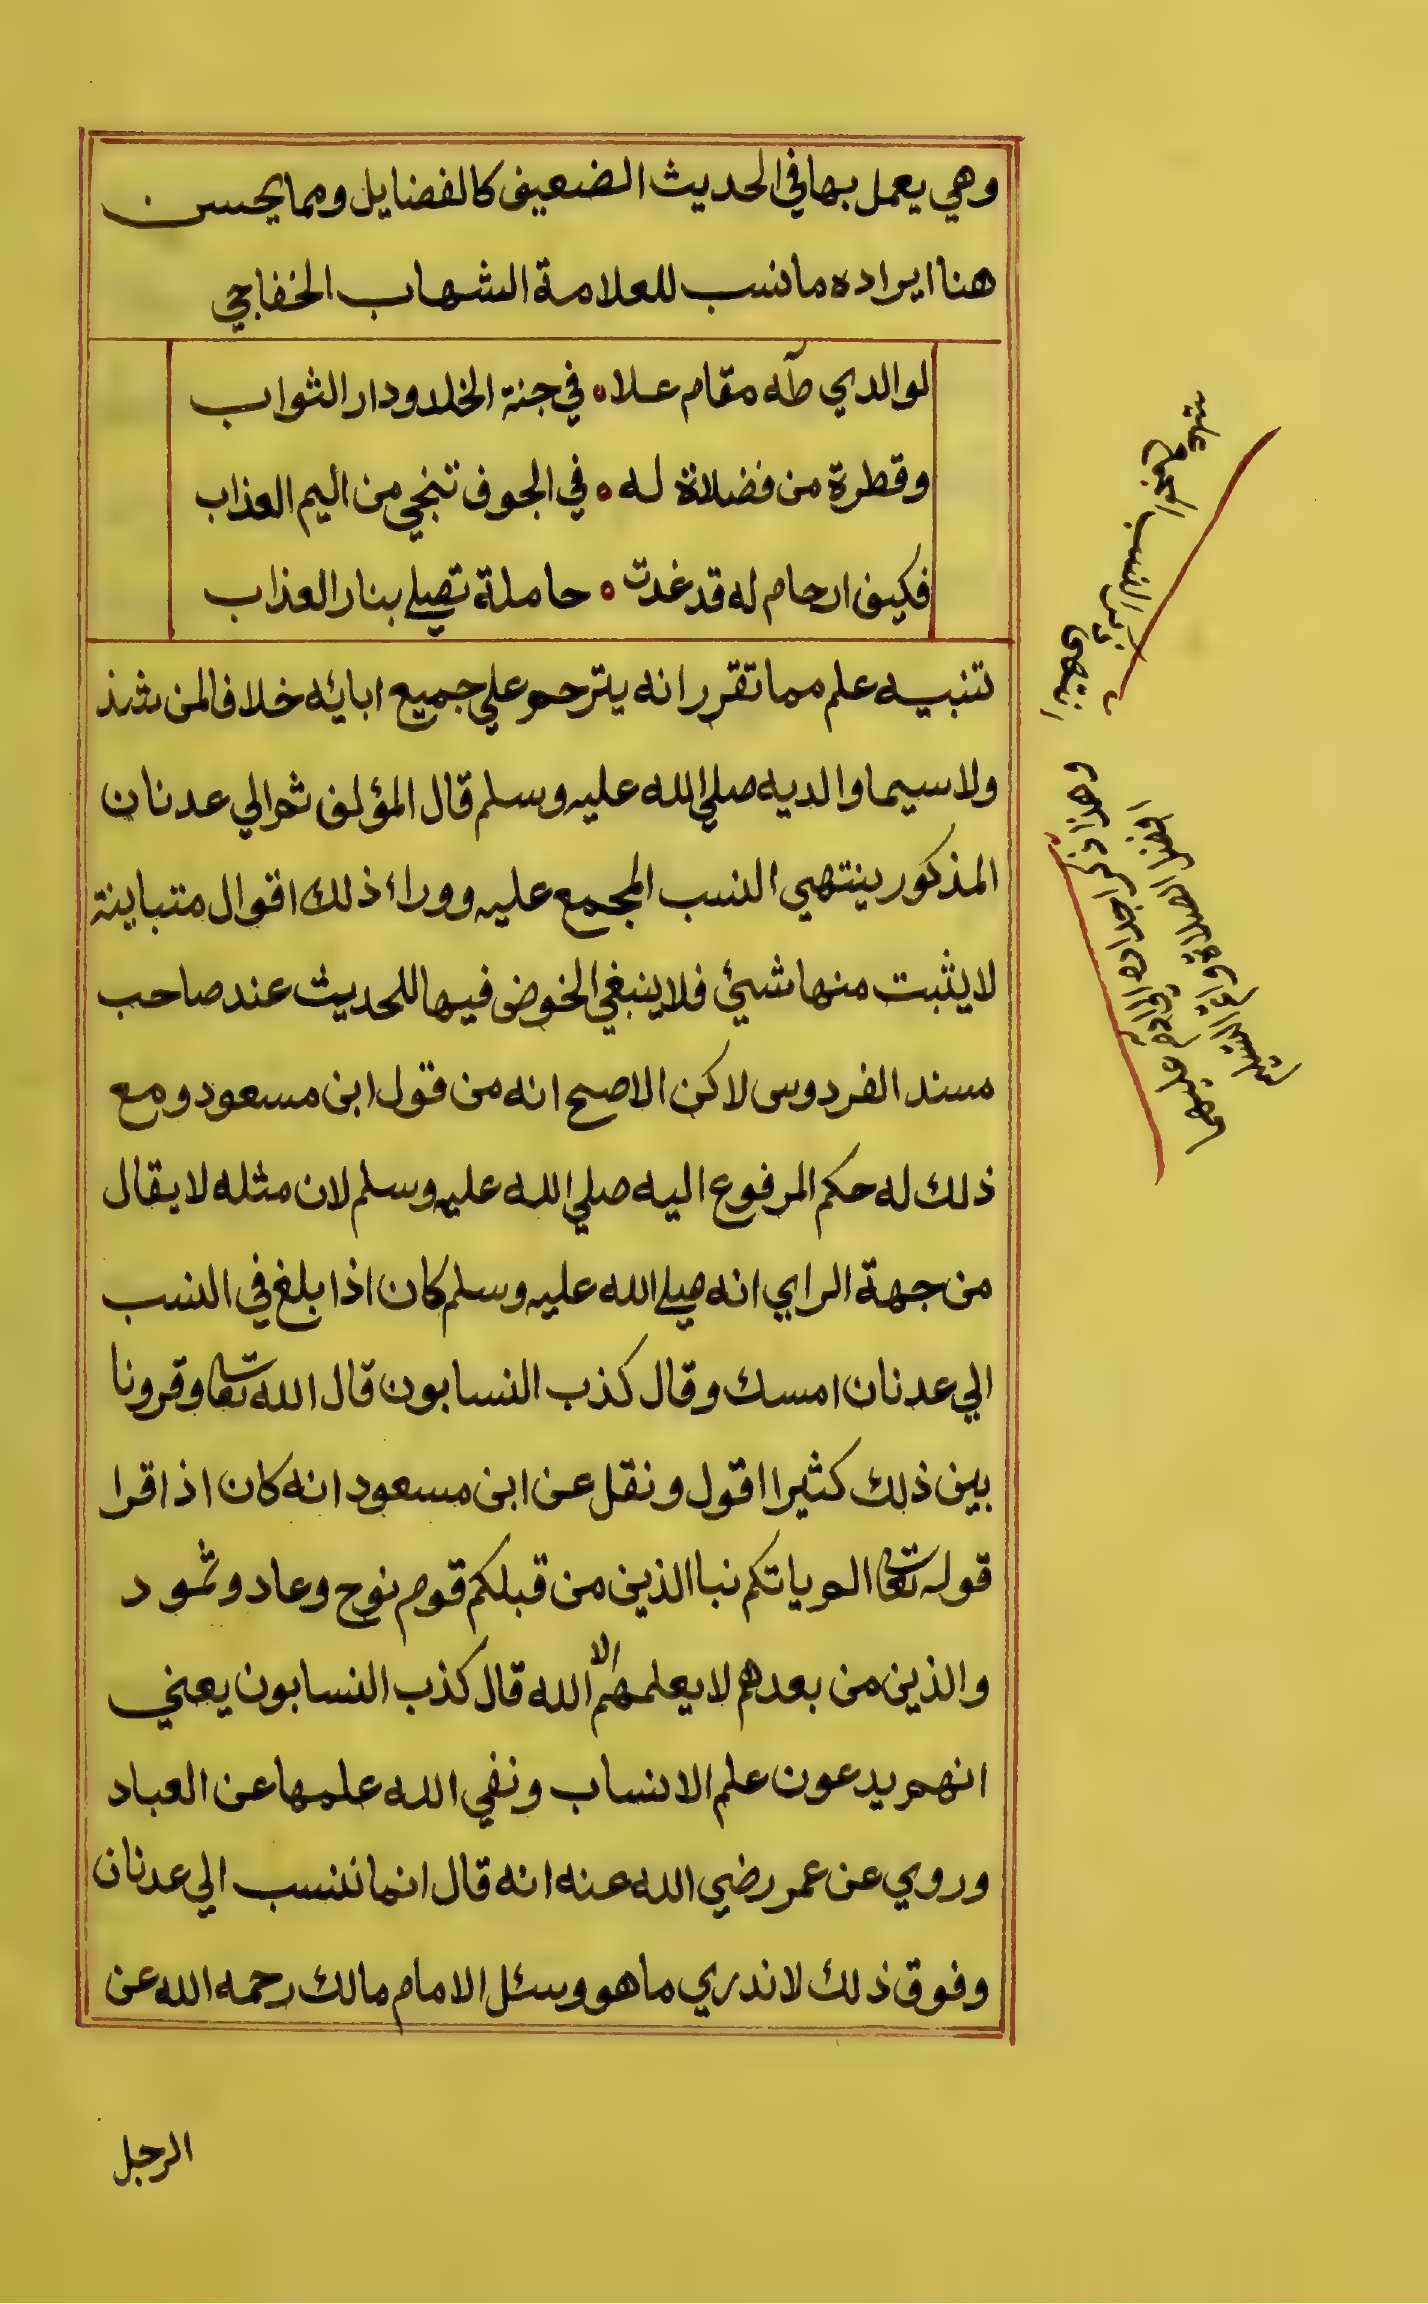 وهي يعمل بها في الحديث الضعيف كالفضايل ومما يحسن
هنا ايراده ما نسب للعلامة الشهاب الخفاجي
لوالدي طه مقام علا ه في جنة الخلد ودار الثواب
وقطرة من فضلاة له ه في الجوف تنجي من اليم العذاب
فكيف ارحام له قد غدت ه حاملة تصلي بنار العذاب
تنبيه علم مما تقرر انه يترحم علي جميع ابائه خلافا لمن شذ
ولا سيما والديه صلي الله عليه وسلم قال المؤلف ثم الي عدنان
المذكور ينتهي النسب المجمع عليه وورا ذلك اقوال متباينة
لا يثبت منها شيئ فلا ينبغي الخوض فيها للحديث عند صاحب
مسند الفردوس لاكن الاصح انه من قول ابن مسعود ومع
ذلك له حكم المرفوع اليه صلي الله عليه وسلم لان مثله لا يقال
من جهة الراي انه صلي الله عليه وسلم كان اذا بلغ في النسب
الي عدنان امسك وقال كذب النسابون قال الله تعا وقرونا
بين ذلك كثيرا اقول ونقل عن ابن مسعود انه كان اذا قرا
قوله تعا الم ياتكم نبا الذين من قبلكم قوم نوح وعاد وثمود
والذين من بعدهم لا يعلمهم الا الله قال كذب النسابون يعني
انهم يدعون علم الانساب ونفي الله علمها عن العباد
وروي عن عمر رضي الله عنه انه قال انما ننسب الي عدنان
وفوق ذلك لا ندري ما هو وسئل الامام مالك رحمه الله عن
الرجل
انتهى ذكر النسب المجمع عليه
وهذا ذكر اجداده الي ادم عليهما
افضل الصلاة واتم التسليم